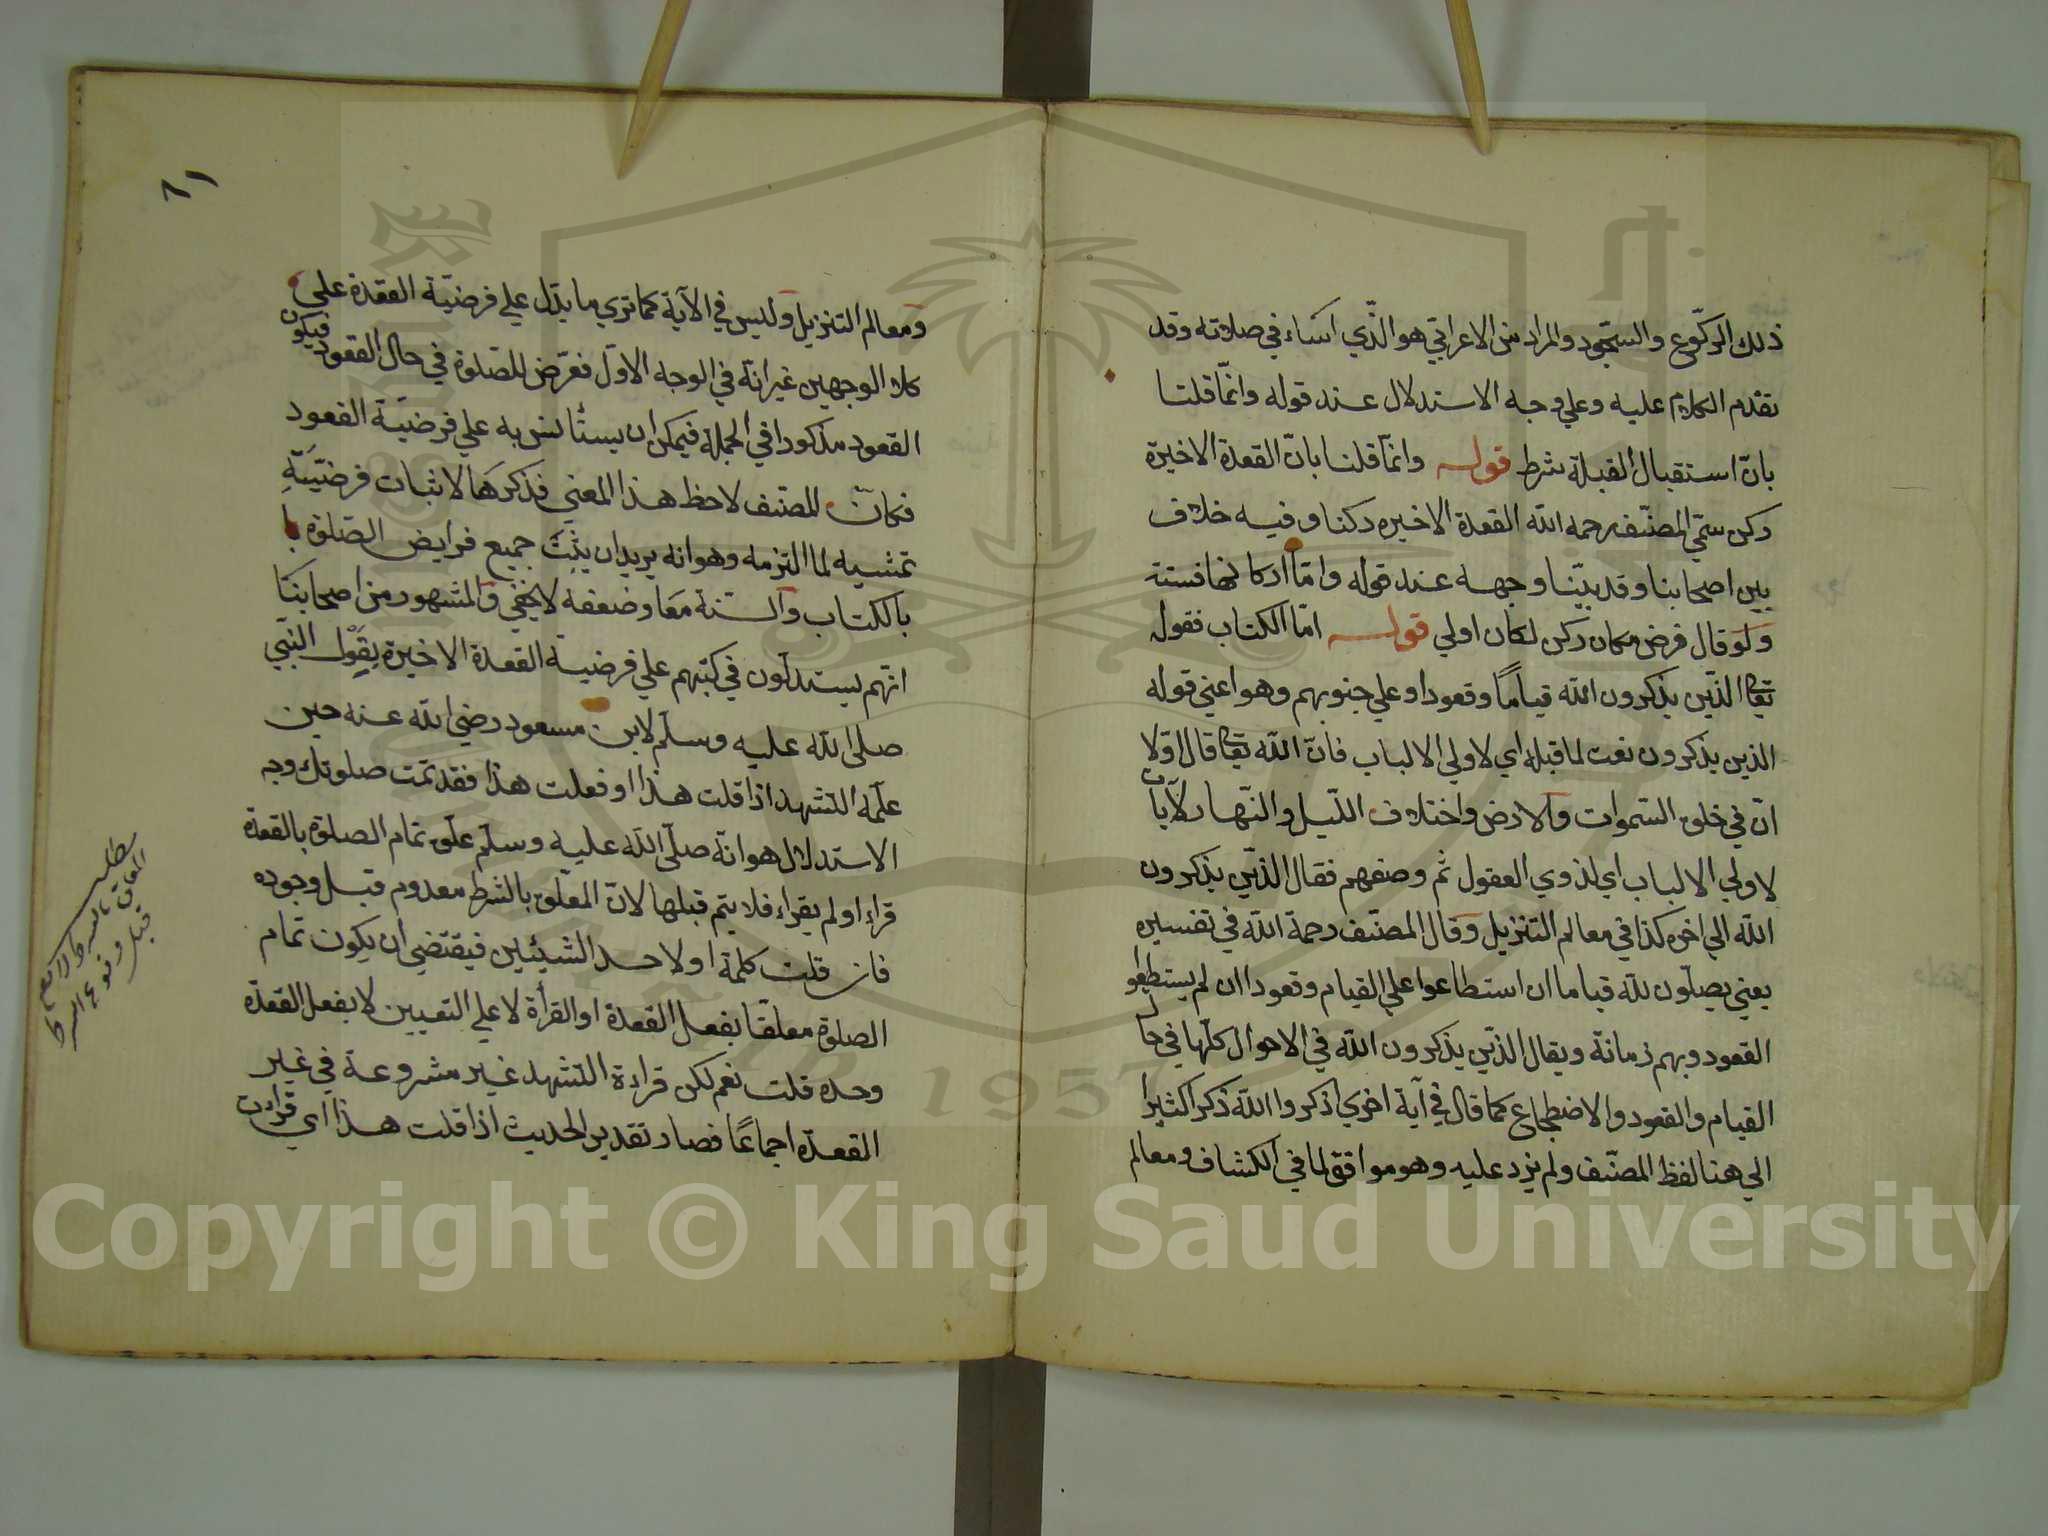 ذلك الركّوع والسّجود والمراد من الاعرابّي هو الّذي اساء في صلاته وقد
تقدم الكلام عليه وعلي وجه الاستدلال عند قوله وانّما قلنا
بانّ استقبال القبلة شرط قوله وانّما قلنا بانّ القعدة الاخيرة
ركن سمّي المصنّف رحمه الله القعدة الاخيره ركنا وفيه خلاف
بين اصحابنا وقد بيّنا وجهه عند قوله وامّا اركانها فستة
ولو قال فرض مكان ركن لكان اولي قوله امّا الكتاب فقوله
تعا الذّين يذكرون الله قياماً وقعودا وعلي جنوبهم وهو اعني قوله
الذين يذكرون نعت لما قبله اي لاولي الالباب فانّ الله تعا قال اوّلا
انّ في خلق السّموات والارض واختلاف اللّيل والنّهار لآيات
لاولي الالباب اي لذوي العقول ثم وصفهم فقال الذّين يذكرون
الله الي اخره كذا في معالم التنزيل وقال المصنّف رحمة الله في تفسيره
يعني يصلّون للّه قياما ان استطاعوا علي القيام وقعودا ان لم يستطيعوا
القعود وبهم زمانة ويقال الذّين يذكرون الله في الاحوال كلّها في حال
القيام والقعود والاضطجاع كما قال في آية اخري اذكروا الله ذكرا كثيرا
الي هنا لفظ المصنّف ولم يزد عليه وهو موافق لما في الكشاف ومعالم
٦١
ومعالم التنزيل وليس في الآية كما تري ما يدّل علي فرضيّة القعدة علي
كلا الوجهين غير انّه في الوجه الاوّل فعّرض للصّلوة في حال القعود فيكون
القعود مذكورا في الجملة فيمكن ان يستأنس به علي فرضيّة القعود
فكانّ المصنف لاحظ هذا المعني فذكرها لاثبات فرضيّيّة
تمشيه لما التزمه وهو انه يريد ان يثبت جميع فرايض الصّلوة با
بالكتاب والسّنة معا وضعفه لا يخفي والمشهور من اصحابنا
انّهم يستدلّون في كتبهم علي فرضيّة القعدة الاخيرة بقول النبّي
صلي الله عليه وسلّم لابن مسعود رضي الله عنه حين
علّمه التشهد اذا قلت هذا او فعلت هذا فقد تمت صلوتك وجه
الاستدلال هو انّه صلّي الله عليه وسلّم علّق تمام الصلوة بالقعدة
قراء او لم يقراء فلا يتم قبلها لانّ المعلّق بالشرط معدوم قبل وجوده
فان قلت كلمة او لاحد الشيئين فيقتضي ان يكون تمام
الصلوة معلقا بفعل القعدة او القرأة لا علي التعيين لا بفعل القعدة
وحده قلت نعم لكن قراءة التشهد غير مشروعة في غير
القعدّه اجماعًا فصار تقدير الحديث اذا قلت هذا اي قراءت
مطلب
المعلق بالشرط لا يقع
قبل وقوع الشرط
Copyright © King Saud University
1957